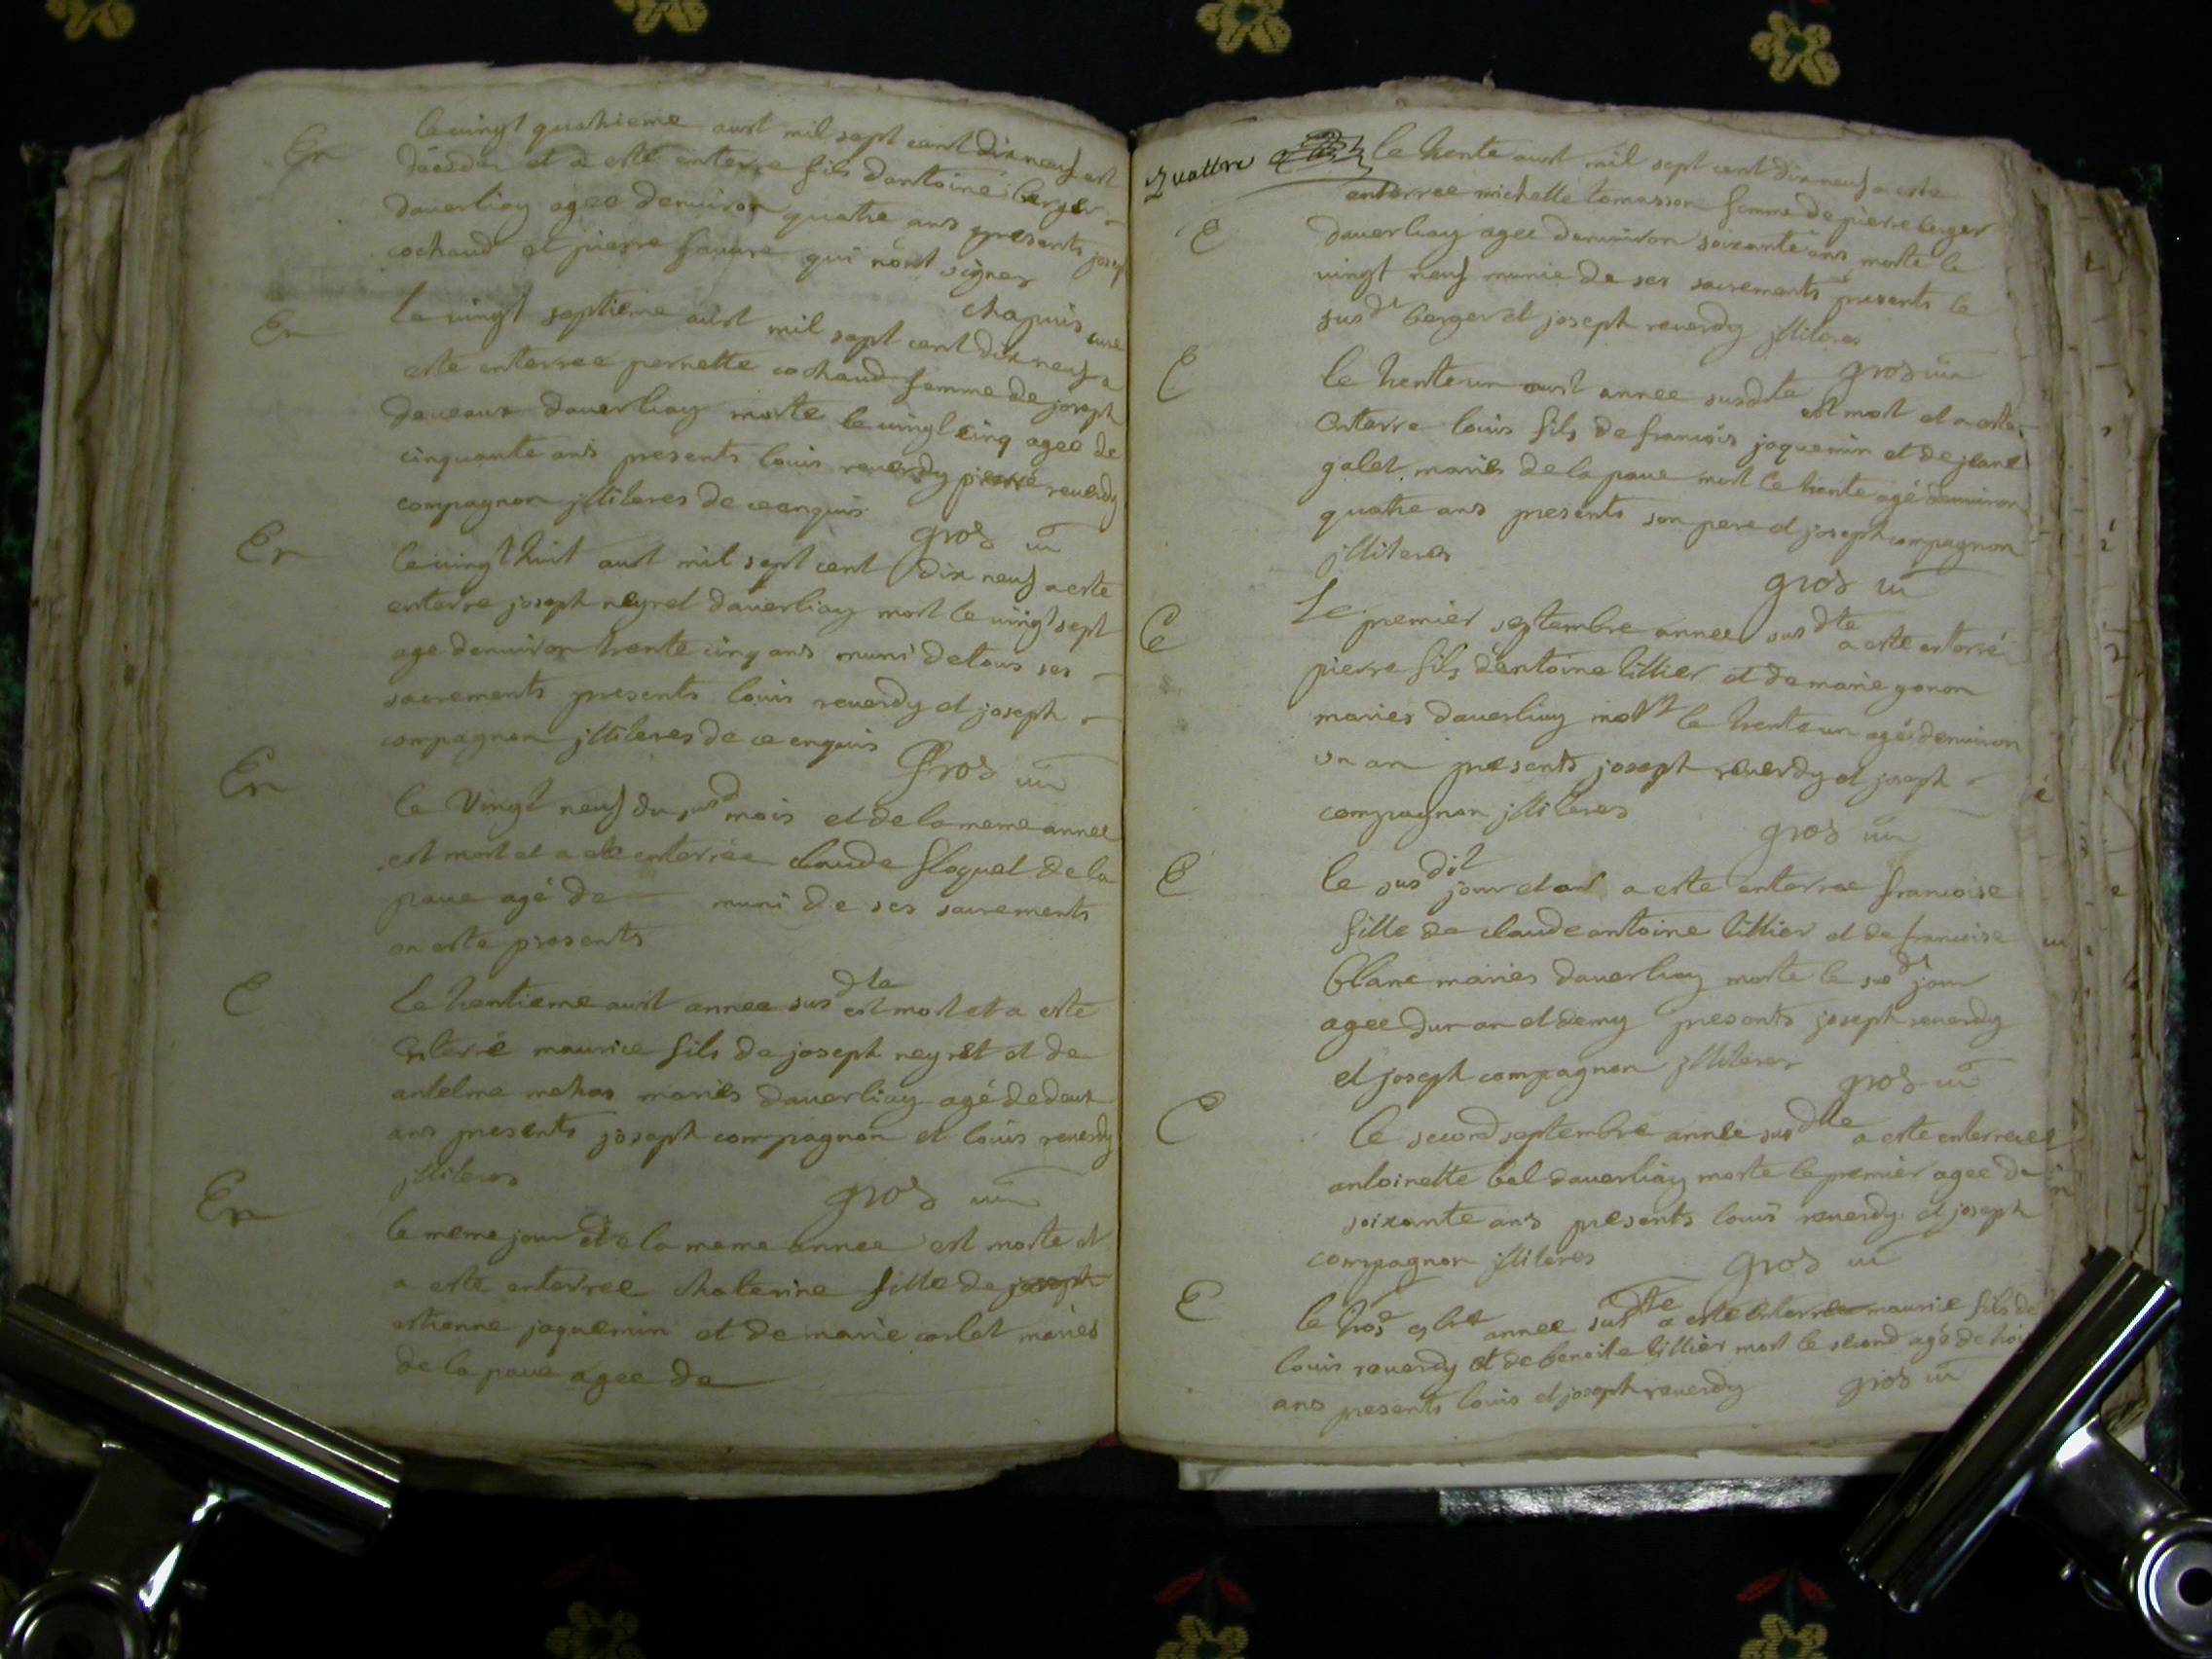 En
le vingt quatrieme aust mil sept cent dix neuf est
decede et a esté enterre fils dantoine berger
daverliay agee denuiron quatre ans presents josep
cochaud et pierre fauure qui nont signer
chapuis cure
En
Le vingt septieme aust mil sept cent dix neuf a
este enterree pernette cochaud femme de joseph
deueaux dauerliay morte le uingt cinq agee de
cinquante ans presents louis reuerdy pierre reuerdy
compagnon jlliteres de ce enquis
gros
En
le uingt huit aust mil sept cent dix neuf a este
enterre joseph neyret dauerliay mort le uingt sept
age denuiron trente cinq ans muni de tous ses
sacrements presents louis reuerdy et joseph
compagnon jlliteres de ce enquis
Gros
En
le Vingt neuf du susd mois et de la meme annee
est mort et a ete enterrée claude floquet de la
paue agé de muni de ses sacrements
on este presents
E
Le trentieme aust annee susdte est mort et a este
Enterré maurice fils de joseph neyret et de
antelme mariés dauerliay agé de deux
ans presents joseph compagnon et louis reuerdy
jlliteres
gros
En
le meme jour et de la meme annee est morte et
a este enterree chaterine fille de joseph
etienne joquemin et de marie carlet mariés
de la paue agee de
Quattre
le trente aust mil sept cent dix neuf a este
E
enterree michelle tomasson femme de pierre berger
dauerliay agee denuiron soixante ans morte le
uingt neuf munie de ses sacrements presents le
susdt berger et joseph reuerdy jlliteres
gros
E
le trenteun aust annee susdte est mort et a este
Enterre louis fils de francois joquemin et de jeane
galet mariés de la paue mort le trente agé denuiron
quatre ans presents son pere et joseph compagnon
jlliteres
gros
E
Le premier septembre annee susdte a este enterré
pierre fils dantoine tillier et de marie gonon
mariés dauerliay mort le trenteun agé denuiron
un an presents joseph reuerdy et joseph
compagnon jlliteres
gros
E
le susdit jour et an a este enterree francoise
fille de claude antoine tillier et de francoise
blanc mariés dauerliay morte le susdt jour
agee dun an et demy presents joseph reuerdy
et joseph compagnon jlliteres
gros
E
le second septembre année susdtte a este enterree
antoinette bal dauerliay morte le premier agee de
soixante ans presents louis reuerdy et joseph
compagnon jlliteres
gros
E
le annee susdte a este enterree maurice fils de
louis reuerdy et de benoite tillier mort le second agé de troi
ans presents louis et joseph reuerdy
gros